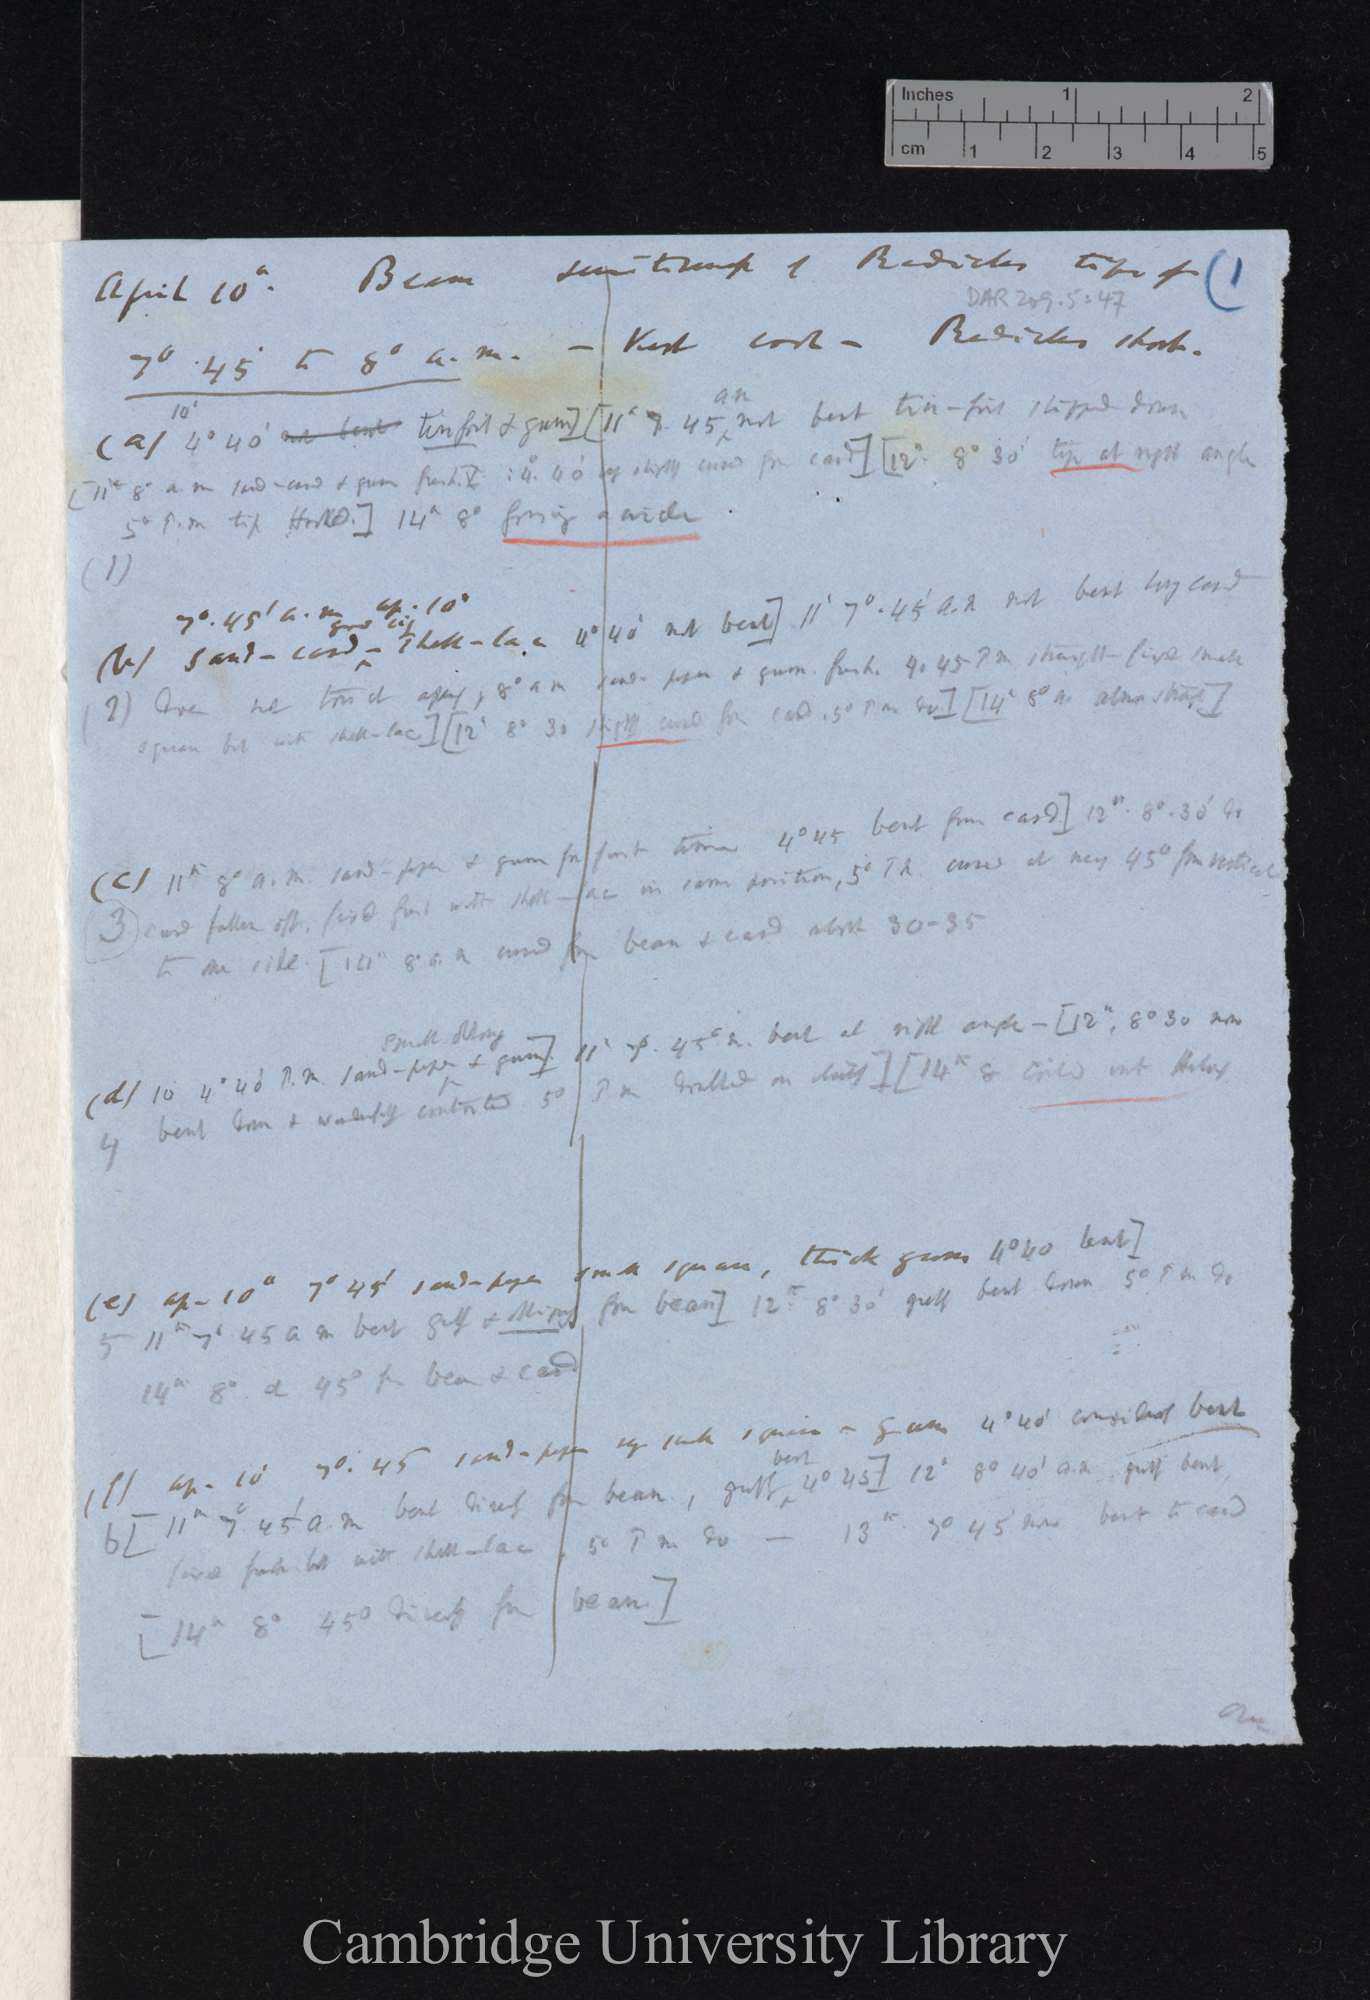 Inches 1 2
cm 1 2 3 4 5
April 10th. Bean sensitiveness of Radicles tips of (1
DAR 209.5:47
7° 45' to 8° a.m. — Kept cool — Radicles short.
10th an
(a) 4° 40' not bent tin-foil & gum] [11th 7. 45, not bent tin-foil slipped down
[11th 8° a.m sand-card & gum fresh. : 4° 40' very slightly curved from card] [12th 8° 30' tip at right angle
5° P.m tip Hooked.] 14th 8° forming a circle
(1)
7°. 45' a.m ap. 10th
(b) Sand-card – shell-lac 4° 40' not bent] 11th 7°. 45' a.m not bent card
2) does not touch apex, 8° a.m sand-paper & gum fresh. 4° 45 P.m straight – fixed small
square but with shell-lac] [12th 8° 30 slightly curved from card. 5° P.m do] [14th 8° a almost straight]
(c) 11th 8° a.m. sand-paper & gum for first time 4° 45 bent from card] 12th. 8°. 30' do
3 card fallen off, fixed fresh with shell-lac in same position, 5° P.m. curved at 45° from vertical
to one side. [14th 8° a.m curved from bean & card about 30-35
small oblong
(d) 10 4° 40' P.m. sand-paper & gum] 11th 7°. 45 a.m. bent at right angle – [12th, 8° 30 now
4 bent down & wonderfully contorted 5° P.m doubled on itself] [14th 8 coiled into Helix
(e) ap – 10th 7° 45' sand-paper small square, thick gum 4° 40 bent]
5 11th 7° 45 a.m bent greatly & from bean] 12th 8° 30' greatly bent down 5° P.m do
14th 8° at 45° from bean & card
(f) ap. 10th 7°. 45 sand-paper very small square – gum 4° 40' considerably bent
bent
6 [11th 7° 45' a.m bent directly from bean, greatly 4° 45] 12th 8° 40' a.m. greatly bent
fixed fresh but with shell-lac, 5° P.m do — 13th. 7° 45 now bent to card
[14th 8° 45° directly from bean.]
Over
Cambridge University Library